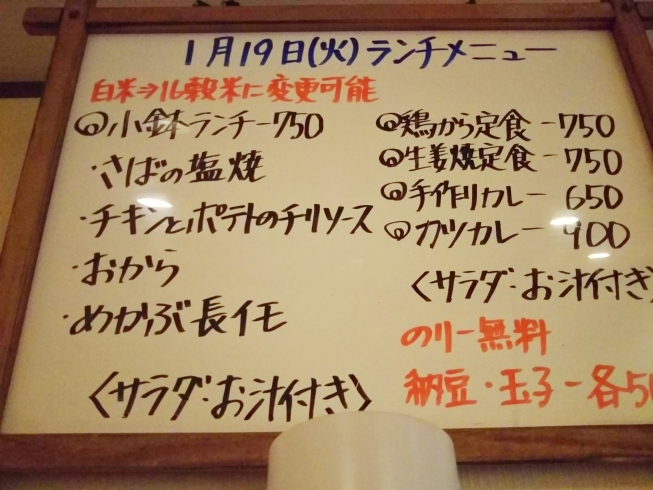 1月19日(火)ランチメニュー
白米⇒16穀米に変更可能
◎小鉢ランチ-750
・さばの塩焼
・チキンとポテトのチリソース
・おから
・めかぶ長イモ
〈サラダ・お汁付き〉
◎鶏から定食-750
◎生姜焼定食-750
◎手作りカレー 650
◎カツカレー 900
〈サラダ・お汁付き〉
のりー無料
納豆・玉子-各50